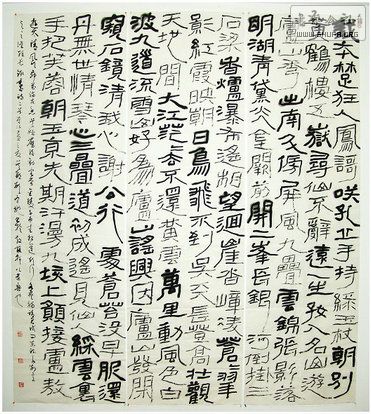 我本楚狂人鳳謌咲孔丘手持綠玉杖朝別
黃鶴樓五嶽尋仙不辭遠一生好入名山遊
廬山秀出南斗傍屏風九疊雲錦張影落
明湖青黛光金闕前開二峯長銀河倒挂三
石梁香爐瀑布遙相望迴崖沓嶂凌蒼蒼翠
影紅霞映朝日鳥飛不到吳天長登高壯觀
天地間大江茫茫去不還黃雲萬里動風色白
波九道流雪山好為廬山謠興因廬山發閒
窺石鏡清我心謝公行處蒼苔沒早服還
丹無世情琴心三疊道初成遙見仙人綵雲裏
手把芙蓉朝玉京先期汗漫九垓上願接盧敖